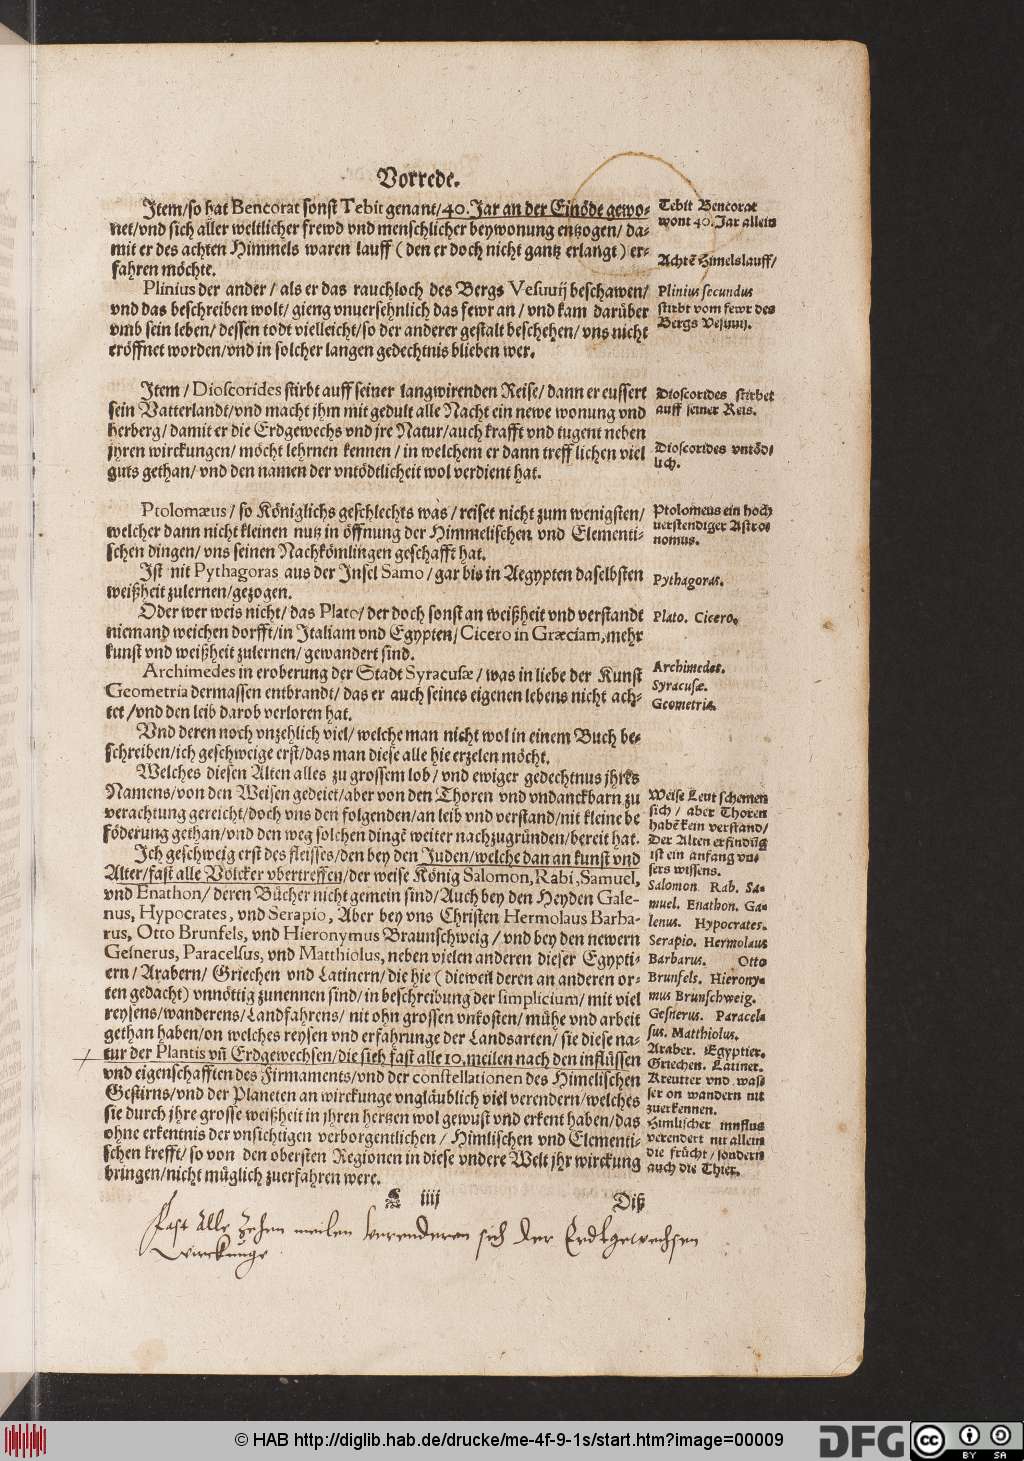 Vorrede.
Item/so hat Bencorat sonst Tebit genant/40. Jar an der Einöde gewo-
net/vnd sich aller weltlicher frewd vnd menschlicher beywonung entzogen/ da-
mit er des achten Himmels waren lauff ( den er doch nicht gantz erlangt ) er-
fahren möchte.
Tebit Bencorat
wont 40. Jar allein
Achtē Himelslauff/
Plinius der ander / als er das rauchloch des Bergs Vesuuij beschawen/
vnd das beschreiben wolt/ gieng vnuersehnlich das fewr an / vnd kam darüber
vmb sein leben/ dessen todt vielleicht/so der anderer gestalt beschehen/ vns nicht
eröffnet worden/vnd in solcher langen gedechtnis blieben wer.
Plinius secundus
stirbt vom fewr des
Bergs Vesuuij.
Item / Dioscorides stirbt auff seiner langwirenden Reise/ dann er eussert
sein Vatterlandt/vnd macht jhm mit gedult alle Nacht ein newe wonung vnd
herberg/ damit er die Erdgewechs vnd jre Natur/auch krafft vnd tugent neben
jhren wirckungen/ möcht lehrnen kennen / in welchem er dann trefflichen viel
guts gethan/ vnd den namen der vntödtlicheit wol verdient hat.
Dioscorides stirbet
auff seiner Reis.
Dioscorides vntöd/
lich.
Ptolomæus / so Königlichs geschlechts was / reiset nicht zum wenigsten/
welcher dann nicht kleinen nutz in öffnung der Himmelischen vnd Elementi-
schen dingen/ vns seinen Nachkömlingen geschafft hat.
Ptolomeus ein hoch
verstendiger Astros
nomus.
Ist nit Pythagoras aus der Insel Samo / gar bis in Aegypten daselbsten
weißheit zulernen/gezogen.
Pythagoras.
Oder wer weis nicht/ das Plato/ der doch sonst an weißheit vnd verstandt
niemand weichen dorfft/in Italiam vnd Egypten/ Cicero in Græciam, mehr
kunst vnd weißheit zulernen/ gewandert sind.
Plato. Cicero.
Archimedes in eroberung der Stadt Syracusæ / was in liebe der Kunst
Geometria dermassen entbrandt/ das er auch seines eigenen lebens nicht ach-
tet /vnd den leib darob verloren hat.
Archimedes.
Syracusæ.
Geometria.
Vnd deren noch vnzehlich viel/ welche man nicht wol in einem Buch be-
schreiben/ich geschweige erst/das man diese alle hie erzelen möcht.
Welches diesen Alten alles zu grossem lob/ vnd ewiger gedechtnus jhrès
Namens/von den Weisen gedeiet/aber von den Thoren vnd vndanckbarn zu
verachtung gereicht/doch vns den folgenden/an leib vnd verstand/nit kleine be
föderung gethan/vnd den weg solchen dingē weiter nachzugründen/bereit hat.
Weise Leut schemen
sich / aber Thoren
habē kein verstand/
Der Alten erfindūg
ist ein anfang vn-
sers wissens.
Ich geschweig erst des fleisses/den bey den Juden/welche dan an kunst vnd
Alter/fast alle Völcker vbertreffen/der weise König Salomon, Rabi, Samuel,
vnd Enathon/ deren Bücher nicht gemein sind/Auch bey den Heyden Gale-
nus, Hypocrates, vnd Serapio, Aber bey vns Christen Hermolaus Barba-
rus, Otto Brunfels, vnd Hieronymus Braunschweig / vnd bey den newern
Gesnerus, Paracelsus, vnd Matthiolus, neben vielen anderen dieser Egypti-
ern/ Arabern/ Griechen vnd Latinern/die hie ( dieweil deren an anderen or-
ten gedacht) vnnöttig zunennen sind/in beschreibung der simplicium/ mit viel
reysens/wanderens/Landfahrens/ nit ohn grossen vnkosten/ mühe vnd arbeit
gethan haben/on welches reysen vnd erfahrunge der Landsarten/ sie diese na-
tur der Plantis vñ Erdgewechsen/die sich fast alle 10. meilen nach den inflüssen
vnd eigenschafften des Firmaments/vnd der constellationen des Himelischen
Gestirns/vnd der Planeten an wirckunge vngläublich viel verendern/welches
sie durch jhre grosse weißheit in jhren hertzen wol gewust vnd erkent haben/das
ohne erkentnis der vnsichtigen verborgentlichen / Himlischen vnd Elementi-
schen krefft/ so von den obersten Regionen in diese vndere Welt jhr wirckung
bringen/nicht müglich zuerfahren were.
Salomon. Rab. Sa-
muel. Enathon. Ga-
lenus. Hypocrates.
Serapio. Hermolaus
Barbarus. Otto
Brunfels. Hierony-
mus Brunschweig.
Gesnerus. Paracel-
sus. Matthiolus.
Araber. Egyptier.
Griechen. Latiner.
Kreutter vnd was
ser on wandern nit
zuerkennen.
Himlischer innflus
verendert nit allein
die frücht/ sondern
auch die Thier.
iiij Diß
Fast alle Zehen meilen verenderen sich der Erdtgewechsen
Wirckunge
© HAB http://diglib.hab.de/drucke/me-4f-9-1s/start.htm?image=00009
DFG
cc
BY SA